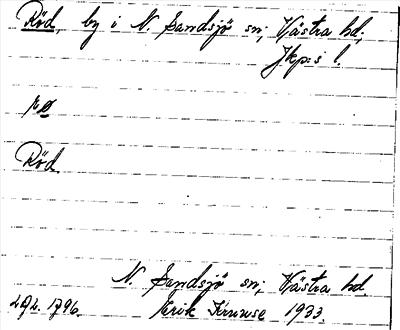 Röd, by i N. Sandsjö sn; Västra hd;
Jkp:s l.
Röd
N. Sandsjö sn; Västra hd.
1796. Erik Kruuse 1933.